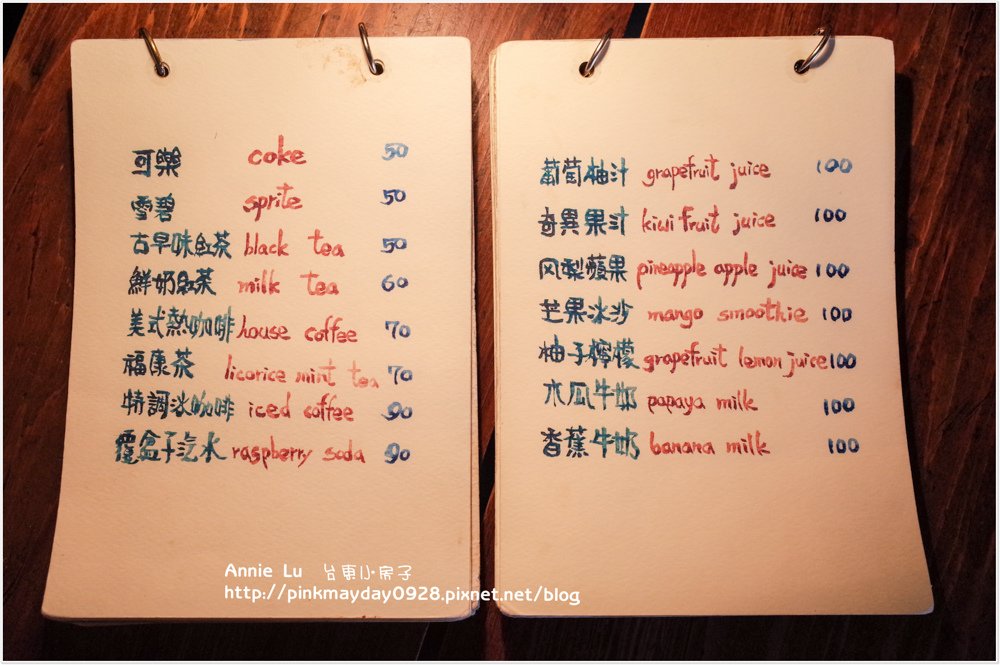 可樂 coke 50
雪碧 sprite 50
古早味紅茶 black tea 50
鮮奶紅茶 milk tea 60
美式熱咖啡 house coffee 70
福康茶 licorice mint tea 70
特調冰咖啡 iced coffee 90
覆盆子汽水 raspberry soda 90
葡萄柚汁 grapefruit juice 100
奇異果汁 kiwi fruit juice 100
风梨蘋果 pineapple apple juice 100
芒果冰沙 mango smoothie 100
柚子檸檬 grapefruit lemon juice 100
木瓜牛奶 papaya milk 100
香蕉牛奶 banana milk 100
Annie Lu 台東小房子
http://pinkmayday0928.pixnet.net/blog